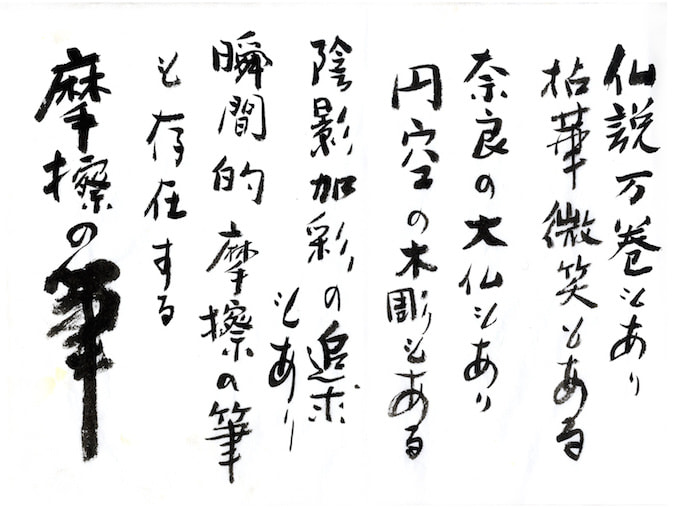 仏説万巻もあり
拈華微笑もある
奈良の大仏もあり
円空の木彫りもある
陰影加彩の追求
もあり
瞬間的摩擦の筆
も存在する
摩擦の筆